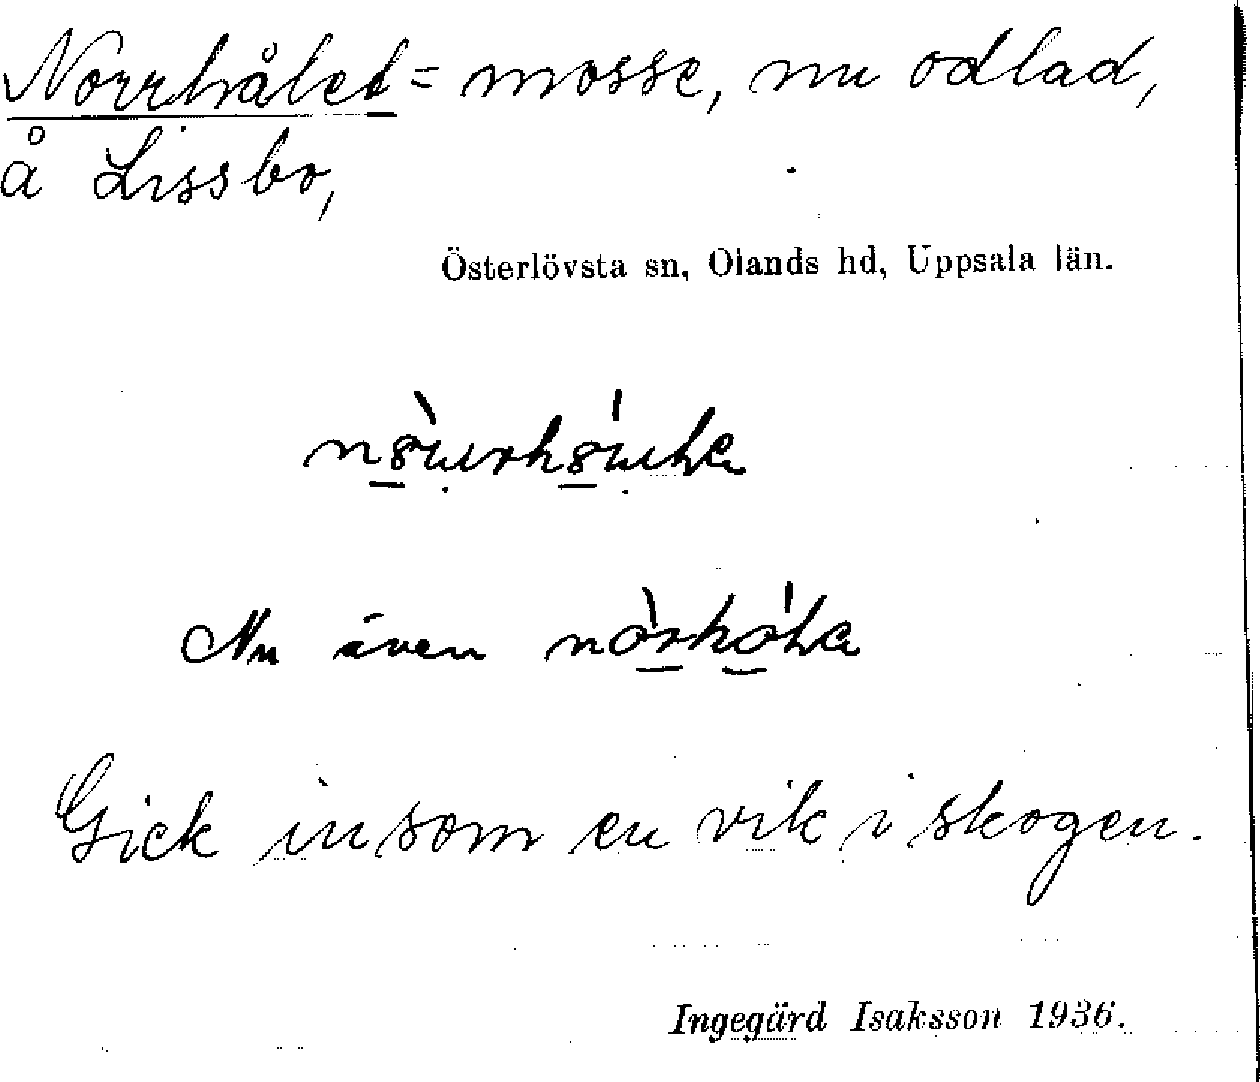 Norrhålet = mosse, nu odlad,
å Lissbo,
Österlövsta sn, Olands hd, Uppsala län.
Nu även
Gick in som en vik i skogen.
Ingegärd Isaksson 1936.